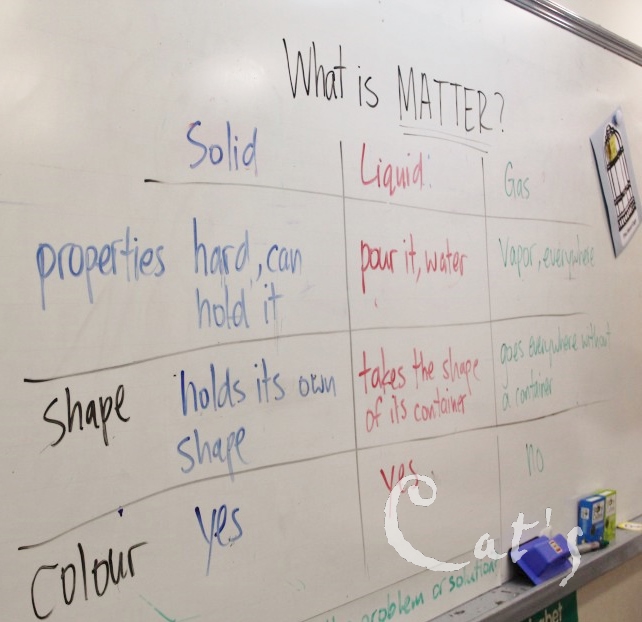 What is MATTER?
Solid
Liquid:
Gas
properties
hard, can
hold it
pour it, water
Vapor, everywhere
Shape
holds its own
shape
takes the shape
of its container
goes everywhere without
a container
Colour
yes
yes
no
problem or solution
Cat's